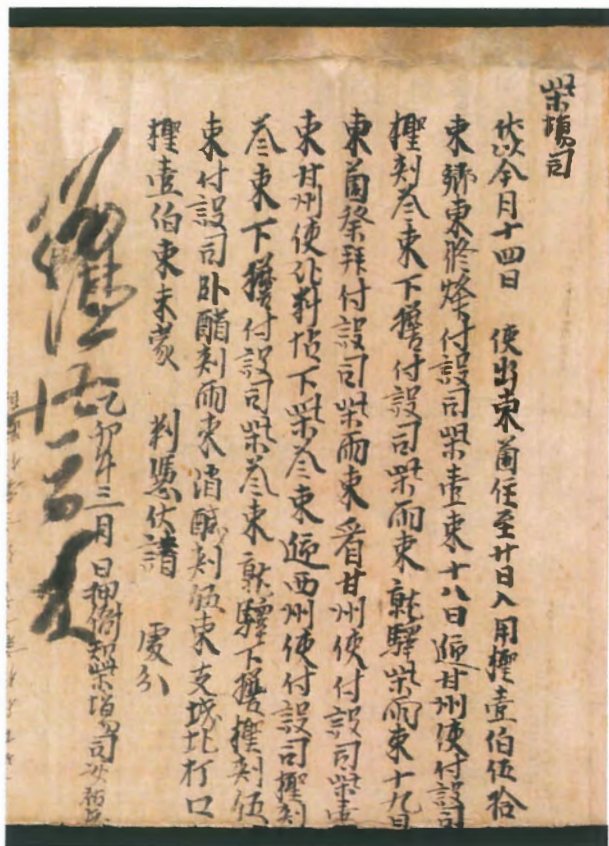 柴塲司
伏以今月十四日　使出東薗住至廿日入用檉壹伯伍拾
束鄉東修烽付設司柴壹束十八日迎甘州使付設司
檉剌叁束下檐付設司柴兩束就驛柴兩束十九日
東薗祭拜付設司柴兩束看甘州使付設司柴壹
束甘州使比料帖下柴叁束迎西州使付設司檉剌
叁束下檐付設司柴叁束就驛下檐檉剌伍
束付設司卧醋剌兩束消醎剌伍束支城北打口
檉壹伯束未蒙　判憑伏請　處分
乙卯年三月　日押衙知柴塲司安祐成